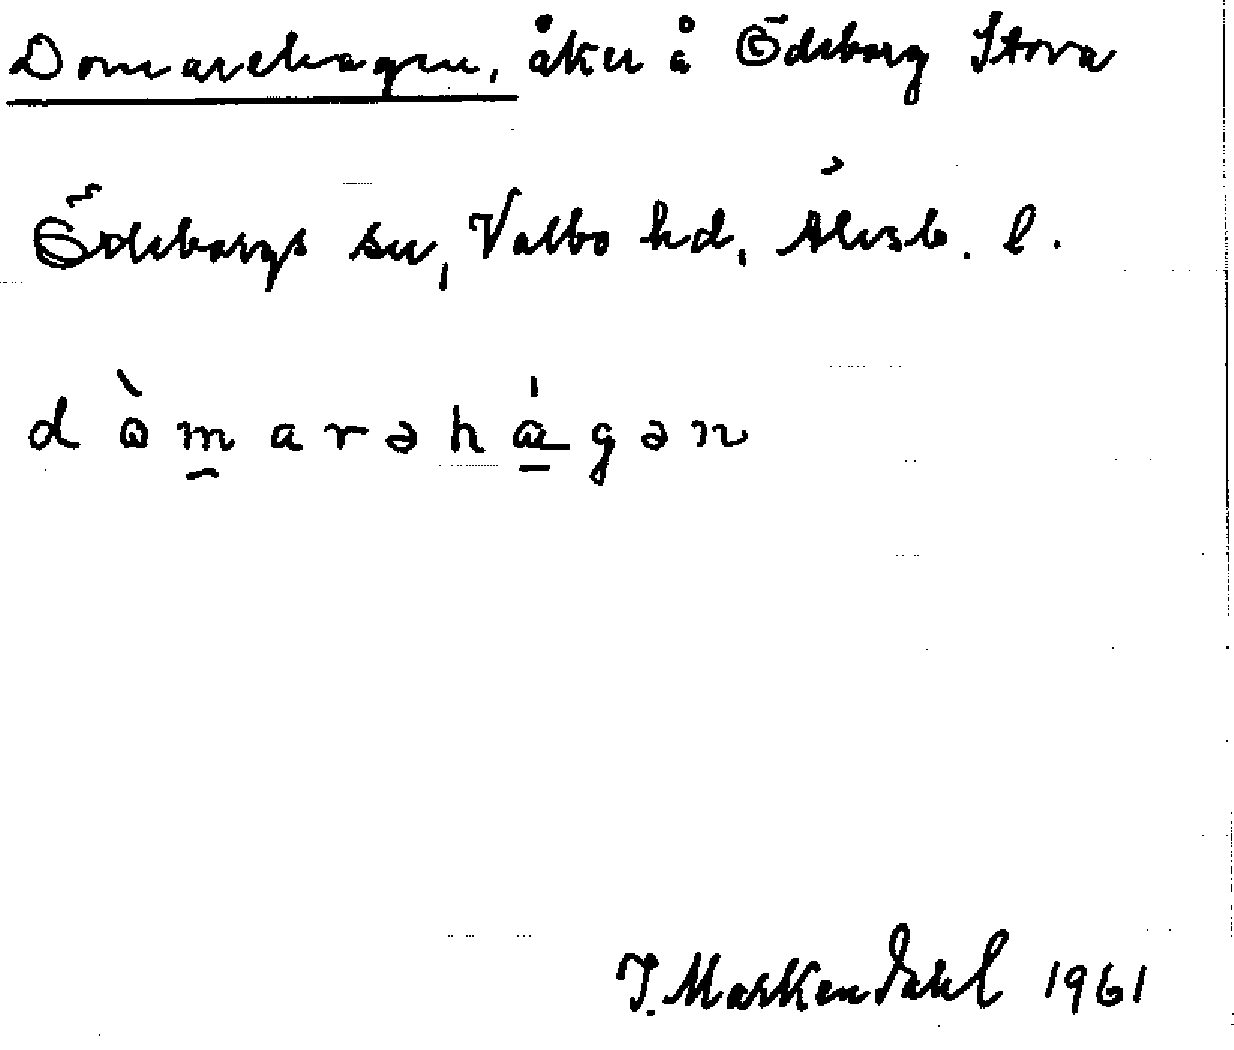 Domarehagen, åker å Ödeborg Stora
Ödeborgs sn, Valbo hd, Älvsb. l.
dòmarəhágən
I. Markendahl 1961